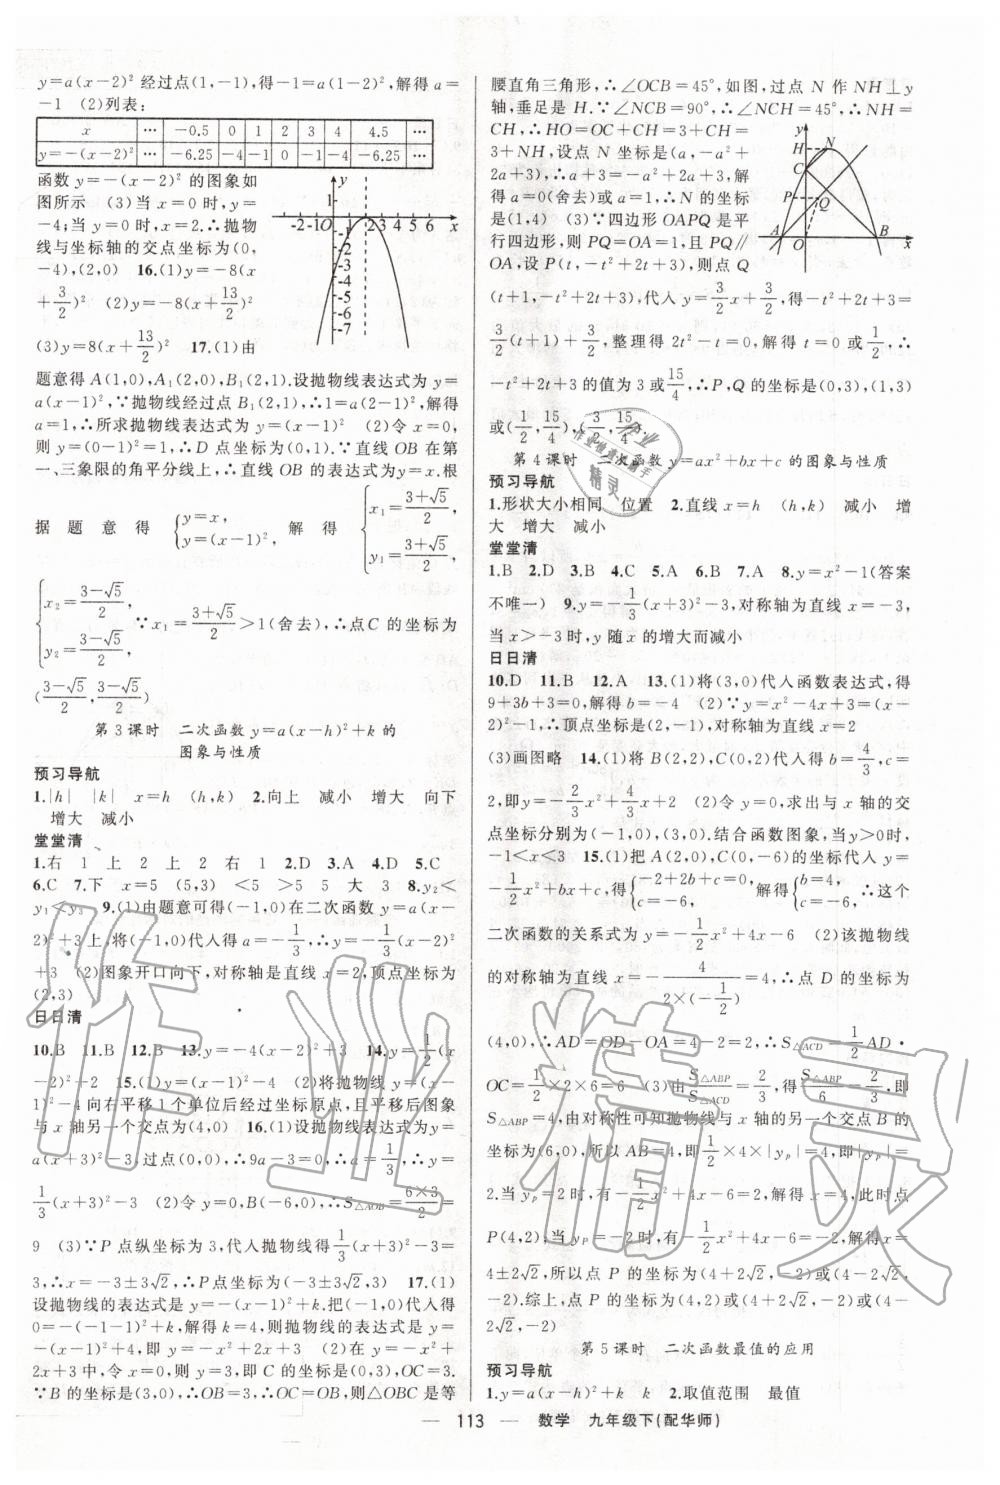 y=a(x-2)² 经过点(1,-1),得-1=a(1-2)²,解得a=
-1 (2)列表:
x … -0.5 0 1 2 3 4 4.5 …
y=-(x-2)² … -6.25 -4 -1 0 -1 -4 -6.25 …
函数 y=-(x-2)² 的图象如
图所示 (3)当 x=0 时,y=
-4;当 y=0 时,x=2.∴抛物
线与坐标轴的交点坐标为(0,
-4),(2,0) 16.(1)y=-8(x
+3/2)² (2)y=-8(x+13/2)²
(3)y=8(x+13/2)² 17.(1)由
题意得 A(1,0),A₁(2,0),B₁(2,1).设抛物线表达式为 y=
a(x-1)²,∵抛物线经过点 B₁(2,1),∴1=a(2-1)²,解得
a=1,∴所求抛物线表达式为 y=(x-1)² (2)令 x=0,
则 y=(0-1)²=1,∴D 点坐标为(0,1).∵直线 OB 在第
一、三象限的角平分线上,∴直线 OB 的表达式为 y=x.根
据题意得 {y=x, y=(x-1)², 解得 {x₁=(3+√5)/2, y₁=(3+√5)/2,
{x₂=(3-√5)/2, y₂=(3-√5)/2. ∵x₁=(3+√5)/2>1(舍去),∴点 C 的坐标为
((3-√5)/2,(3-√5)/2)
第 3 课时 二次函数 y=a(x-h)²+k 的
图象与性质
预习导航
1.|h| |k| x=h (h,k) 2.向上 减小 增大 向下
增大 减小
堂堂清
1.右 1 上 2 上 2 右 1 2.D 3.A 4.D 5.C
6.C 7.下 x=5 (5,3) <5 >5 5 大 3 8.y₂<
y₁<y₃ 9.(1)由题意可得(-1,0)在二次函数 y=a(x-
2)²+3上,将(-1,0)代入得 a=-1/3,∴y=-1/3(x-2)²
+3 (2)图象开口向下,对称轴是直线 x=2,顶点坐标为
(2,3)
日日清
10.B 11.B 12.B 13.y=-4(x-2)²+3 14.y=1/2(x
-2)²+2 15.(1)y=(x-1)²-4 (2)将抛物线 y=(x-
1)²-4 向右平移 1 个单位后经过坐标原点,且平移后图象
与 x 轴另一个交点为(4,0) 16.(1)设抛物线表达式为 y=
a(x+3)²-3,过点(0,0),∴9a-3=0,∴a=1/3,∴y=
1/3(x+3)²-3 (2)令 y=0,B(-6,0),∴S△AOB=(6×3)/2=
9 (3)∵P 点纵坐标为 3,代入抛物线得1/3(x+3)²-3=
3,∴x=-3±3√2,∴P点坐标为(-3±3√2,3) 17.(1)
设抛物线的表达式是 y=-(x-1)²+k.把(-1,0)代入得
0=-(-1-1)²+k,解得 k=4,则抛物线的表达式是 y=
-(x-1)²+4,即 y=-x²+2x+3 (2)在 y=-x²+
2x+3 中,令 x=0,则 y=3,即 C 的坐标是(0,3),OC=3.
∵B 的坐标是(3,0),∴OB=3,∴OC=OB,则△OBC 是等
腰直角三角形,∴∠OCB=45°,如图,过点 N 作 NH⊥y
轴,垂足是 H.∵∠NCB=90°,∴∠NCH=45°,∴NH=
CH,∴HO=OC+CH=3+CH=
3+NH,设点 N 坐标是(a,-a²+
2a+3),∴a+3=-a²+2a+3,解
得 a=0(舍去)或 a=1,∴N 的坐标
是(1,4) (3)∵四边形 OAPQ 是平
行四边形,则 PQ=OA=1,且 PQ∥
OA,设 P(t,-t²+2t+3),则点 Q
(t+1,-t²+2t+3),代入 y=3/2x+3/2,得-t²+2t+3=
3/2(t+1)+3/2,整理得 2t²-t=0,解得 t=0 或1/2,∴
-t²+2t+3 的值为 3 或15/4,∴P,Q 的坐标是(0,3),(1,3)
或(1/2,15/4),(3/2,15/4).
第 4 课时 二次函数 y=ax²+bx+c 的图象与性质
预习导航
1.形状大小相同 位置 2.直线 x=h (h,k) 减小 增
大 增大 减小
堂堂清
1.B 2.D 3.B 4.C 5.A 6.B 7.A 8.y=x²-1(答案
不唯一) 9.y=-1/3(x+3)²-3,对称轴为直线 x=-3,
当 x>-3时,y 随 x 的增大而减小
日日清
10.D 11.B 12.A 13.(1)将(3,0)代入函数表达式,得
9+3b+3=0,解得 b=-4 (2)∵y=x²-4x+3=(x-
2)²-1,∴顶点坐标是(2,-1),对称轴为直线 x=2
(3)画图略 14.(1)将 B(2,2),C(0,2)代入得 b=4/3,c=
2,即y=-2/3x²+4/3x+2 (2)令 y=0,求出与 x 轴的交
点坐标分别为(-1,0),(3,0).结合函数图象,当y>0时,
-1<x<3 15.(1)把 A(2,0),C(0,-6)的坐标代入 y=
-1/2x²+bx+c,得{-2+2b+c=0, c=-6, 解得{b=4, c=-6, ∴这个
二次函数的关系式为 y=-1/2x²+4x-6 (2)该抛物线
的对称轴为直线 x=-4/(2×(-1/2))=4,∴点 D 的坐标为
(4,0),∴AD=OD-OA=4-2=2,∴S△ACD=1/2AD·
OC=1/2×2×6=6 (3)由S△ABP/S△ACD=2/3,得S△ABP/6=2/3,即
S△ABP=4,由对称性可知抛物线与 x 轴的另一个交点 B 的
坐标为(6,0),所以 AB=4,即1/2×4×|yₚ|=4,即 yₚ=±
2.当 yₚ=2 时,有-1/2x²+4x-6=2,解得 x=4,此时点
P(4,2),当 yₚ=-2 时,有-1/2x²+4x-6=-2,解得x=
4±2√2,所以点 P 的坐标为(4+2√2,-2)或(4-2√2,
-2).综上,点 P 的坐标为(4,2)或(4+2√2,-2)或(4-
2√2,-2)
第 5 课时 二次函数最值的应用
预习导航
1.y=a(x-h)²+k k 2.取值范围 最值
— 113 — 数学 九年级下(配华师)
作业精灵